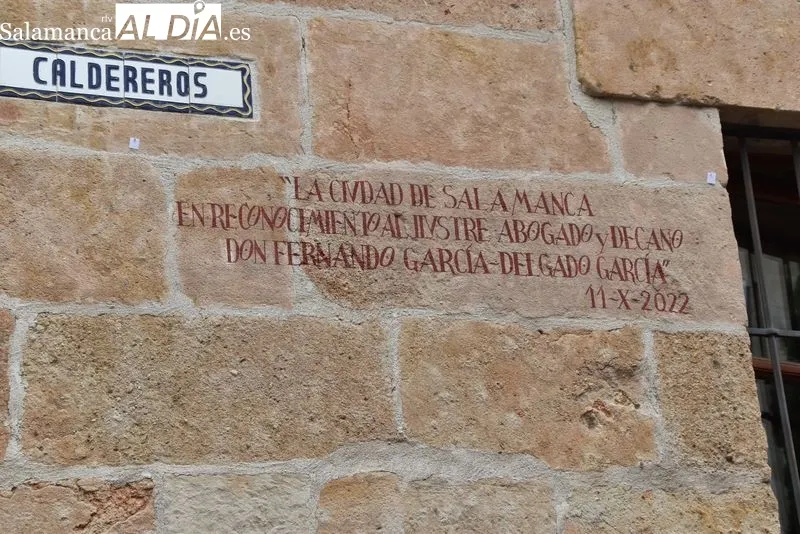 rtv
SalamancaALDÍA.es
CALDEREROS
"LA CIVDAD DE SALAMANCA
EN RECONOCIMIENTO AL ILVSTRE ABOGADO y DECANO
DON FERNANDO GARCÍA-DELGADO GARCÍA"
11-X-2022